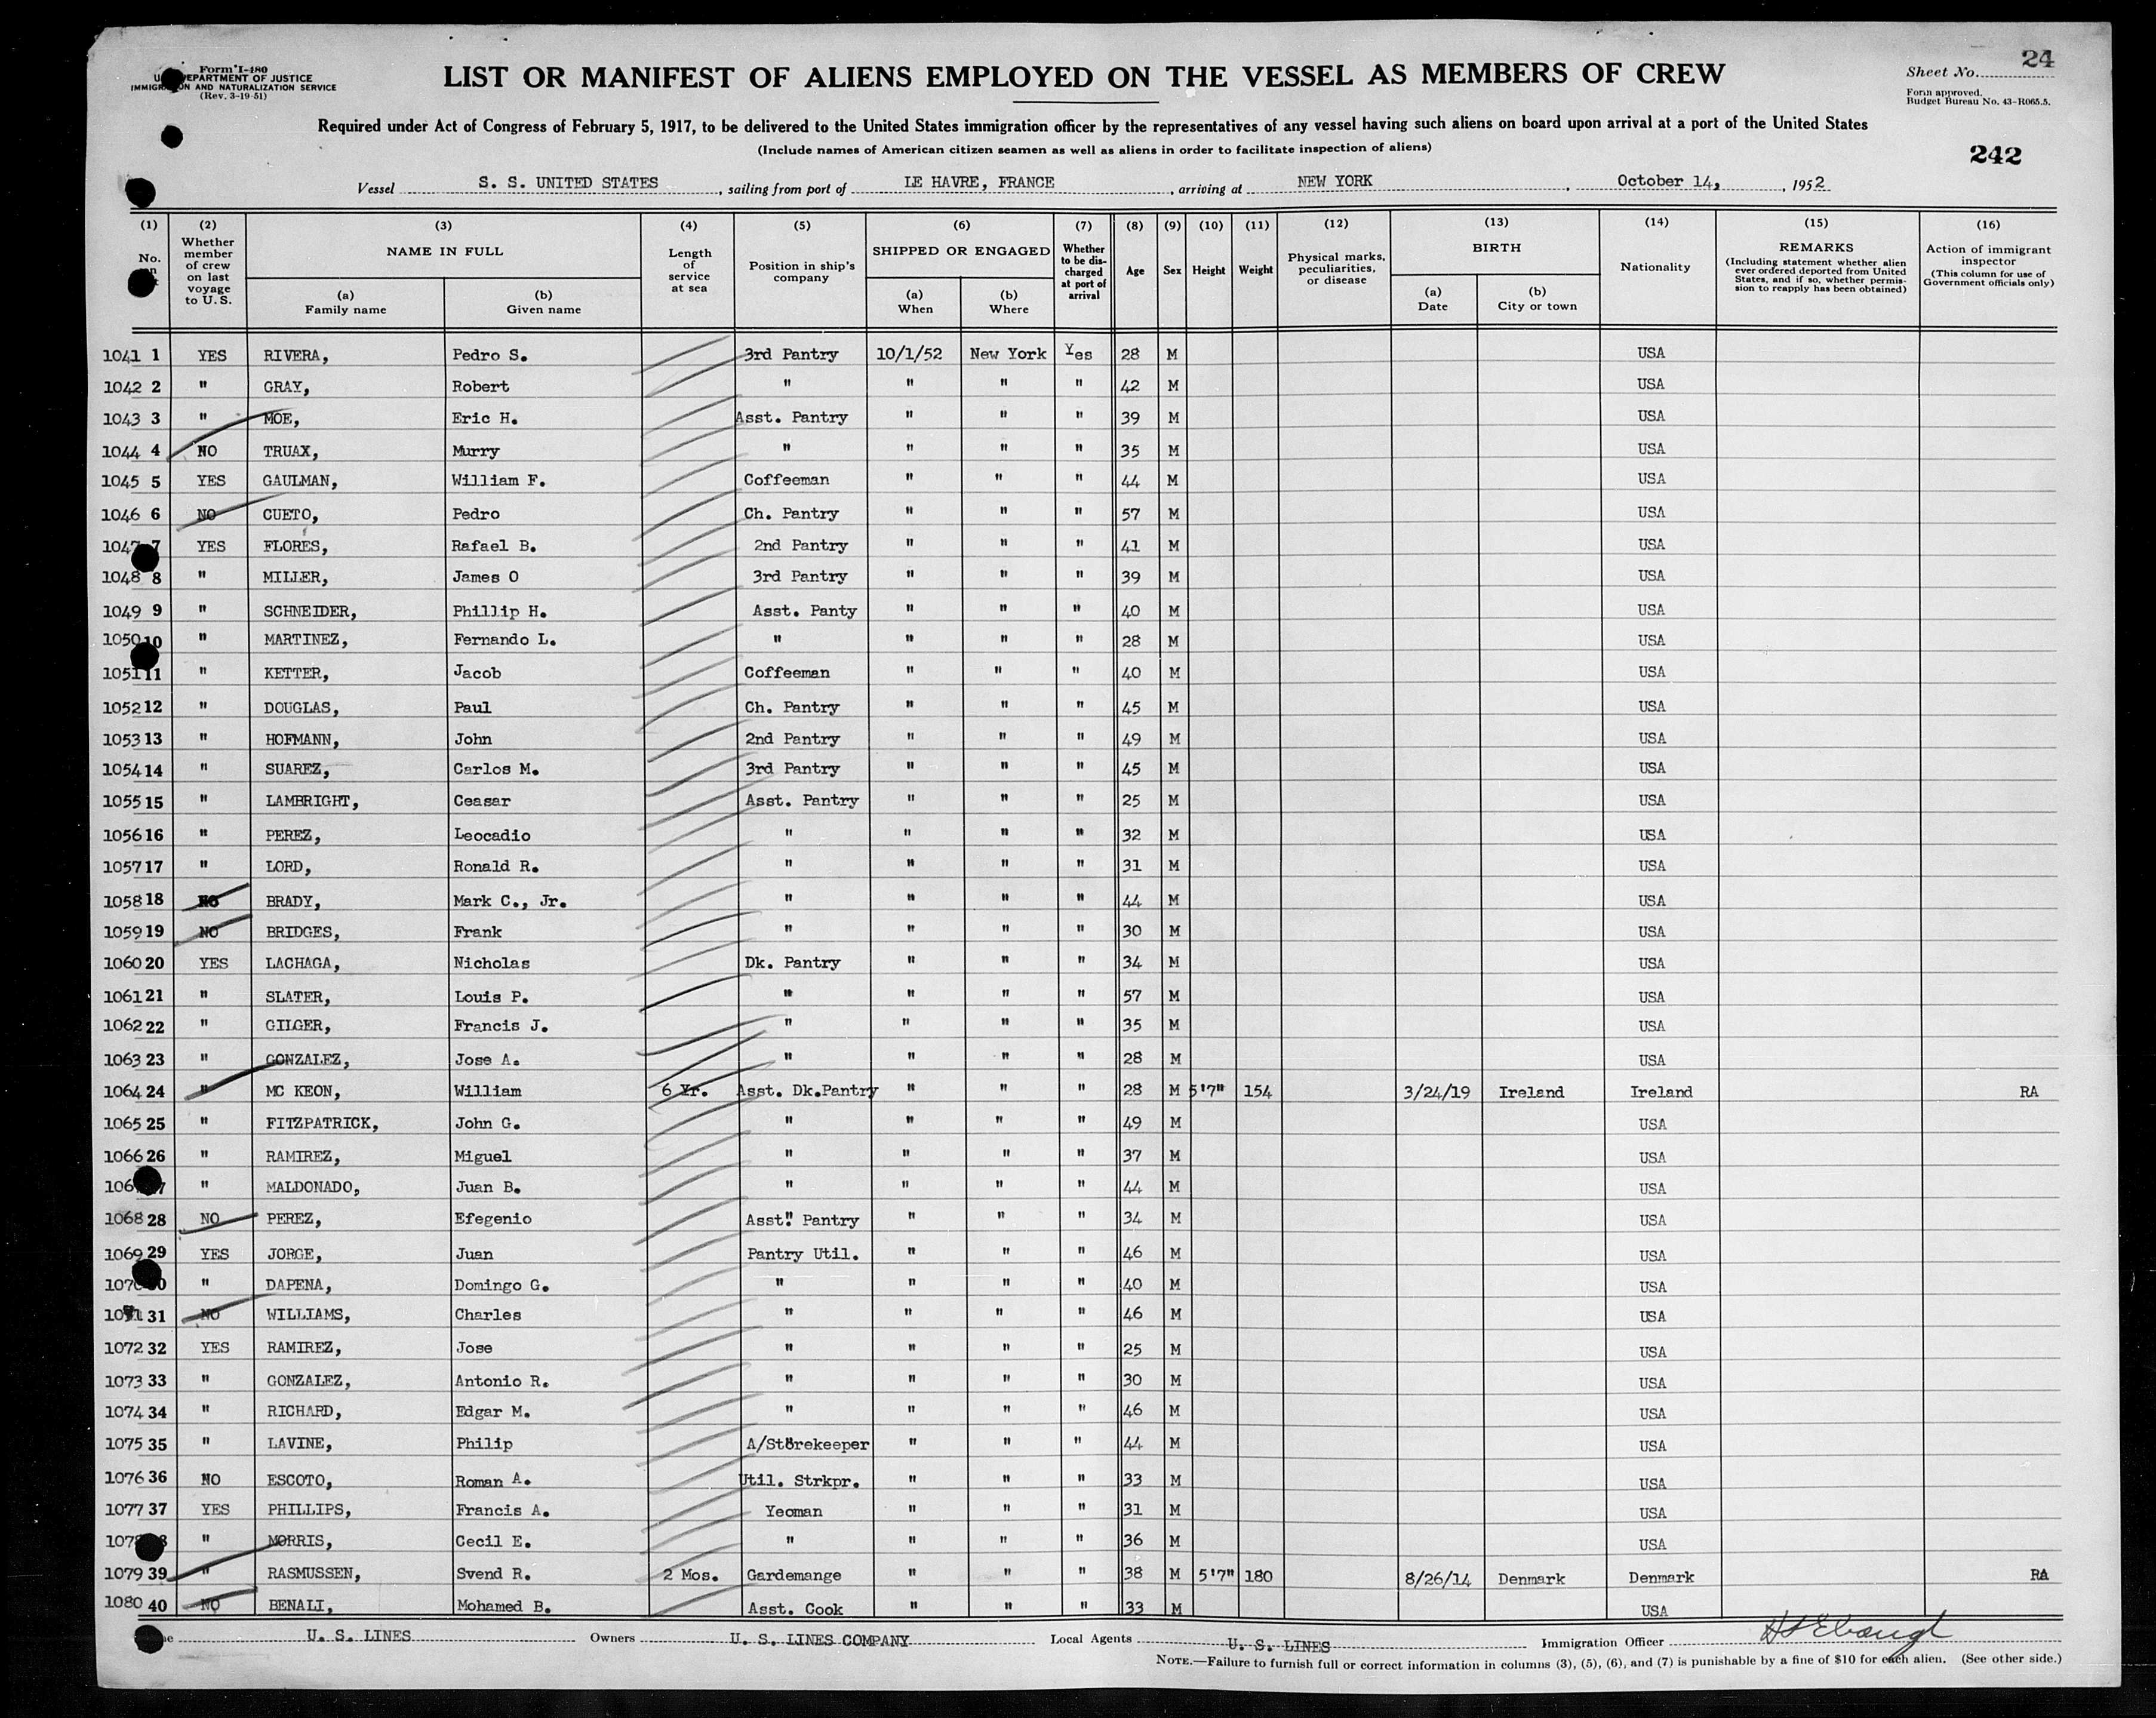 Form I-480
U. DEPARTMENT OF JUSTICE
IMMIGR ON AND NATURALIZATION SERVICE
(Rev. 3-19-51)
LIST OR MANIFEST OF ALIENS EMPLOYED ON THE VESSEL AS MEMBERS OF CREW
Sheet No. 24
Form approved.
Budget Bureau No. 43-R065.5.
Required under Act of Congress of February 5, 1917, to be delivered to the United States immigration officer by the representatives of any vessel having such aliens on board upon arrival at a port of the United States
(Include names of American citizen seamen as well as aliens in order to facilitate inspection of aliens)
242
Vessel S. S. UNITED STATES, sailing from port of LE HAVRE, FRANCE, arriving at NEW YORK, October 14, 1952
(1) No.
(2) Whether member of crew on last voyage to U. S.
(3) NAME IN FULL (a) Family name (b) Given name
(4) Length of service at sea
(5) Position in ship's company
(6) SHIPPED OR ENGAGED (a) When (b) Where
(7) Whether to be discharged at port of arrival
(8) Age
(9) Sex
(10) Height
(11) Weight
(12) Physical marks, peculiarities, or disease
(13) BIRTH (a) Date (b) City or town
(14) Nationality
(15) REMARKS (Including statement whether alien ever ordered deported from United States, and if so, whether permission to reapply has been obtained)
(16) Action of immigrant inspector (This column for use of Government officials only)
1041 1 YES RIVERA, Pedro S. 3rd Pantry 10/1/52 New York Yes 28 M USA
1042 2 " GRAY, Robert " " " " 42 M USA
1043 3 " MOE, Eric H. Asst. Pantry " " " 39 M USA
1044 4 NO TRUAX, Murry " " " " 35 M USA
1045 5 YES GAULMAN, William F. Coffeeman " " " 44 M USA
1046 6 NO CUETO, Pedro Ch. Pantry " " " 57 M USA
1047 7 YES FLORES, Rafael B. 2nd Pantry " " " 41 M USA
1048 8 " MILLER, James O 3rd Pantry " " " 39 M USA
1049 9 " SCHNEIDER, Phillip H. Asst. Panty " " " 40 M USA
1050 10 " MARTINEZ, Fernando L. " " " " 28 M USA
1051 11 " KETTER, Jacob Coffeeman " " " 40 M USA
1052 12 " DOUGLAS, Paul Ch. Pantry " " " 45 M USA
1053 13 " HOFMANN, John 2nd Pantry " " " 49 M USA
1054 14 " SUAREZ, Carlos M. 3rd Pantry " " " 45 M USA
1055 15 " LAMBRIGHT, Ceasar Asst. Pantry " " " 25 M USA
1056 16 " PEREZ, Leocadio " " " " 32 M USA
1057 17 " LORD, Ronald R. " " " " 31 M USA
1058 18 NO BRADY, Mark C., Jr. " " " " 44 M USA
1059 19 NO BRIDGES, Frank " " " " 30 M USA
1060 20 YES LACHAGA, Nicholas Dk. Pantry " " " 34 M USA
1061 21 " SLATER, Louis P. " " " " 57 M USA
1062 22 " GILGER, Francis J. " " " " 35 M USA
1063 23 " GONZALEZ, Jose A. " " " " 28 M USA
1064 24 " MC KEON, William 6 Yr. Asst. Dk.Pantry " " " 28 M 5'7" 154 3/24/19 Ireland Ireland RA
1065 25 " FITZPATRICK, John G. " " " " 49 M USA
1066 26 " RAMIREZ, Miguel " " " " 37 M USA
106 7 " MALDONADO, Juan B. " " " " 44 M USA
1068 28 NO PEREZ, Efegenio Asst. Pantry " " " 34 M USA
1069 29 YES JORGE, Juan Pantry Util. " " " 46 M USA
107 0 " DAPENA, Domingo G. " " " " 40 M USA
1071 31 NO WILLIAMS, Charles " " " " 46 M USA
1072 32 YES RAMIREZ, Jose " " " " 25 M USA
1073 33 " GONZALEZ, Antonio R. " " " " 30 M USA
1074 34 " RICHARD, Edgar M. " " " " 46 M USA
1075 35 " LAVINE, Philip A/Storekeeper " " " 44 M USA
1076 36 NO ESCOTO, Roman A. Util. Strkpr. " " " 33 M USA
1077 37 YES PHILLIPS, Francis A. Yeoman " " " 31 M USA
1078 8 " MORRIS, Cecil E. " " " " 36 M USA
1079 39 " RASMUSSEN, Svend R. 2 Mos. Gardemange " " " 38 M 5'7" 180 8/26/14 Denmark Denmark RA
1080 40 NO BENALI, Mohamed B. Asst. Cook " " " 33 M USA
U. S. LINES Owners U. S. LINES COMPANY Local Agents U. S. LINES Immigration Officer
NOTE.—Failure to furnish full or correct information in columns (3), (5), (6), and (7) is punishable by a fine of $10 for each alien. (See other side.)